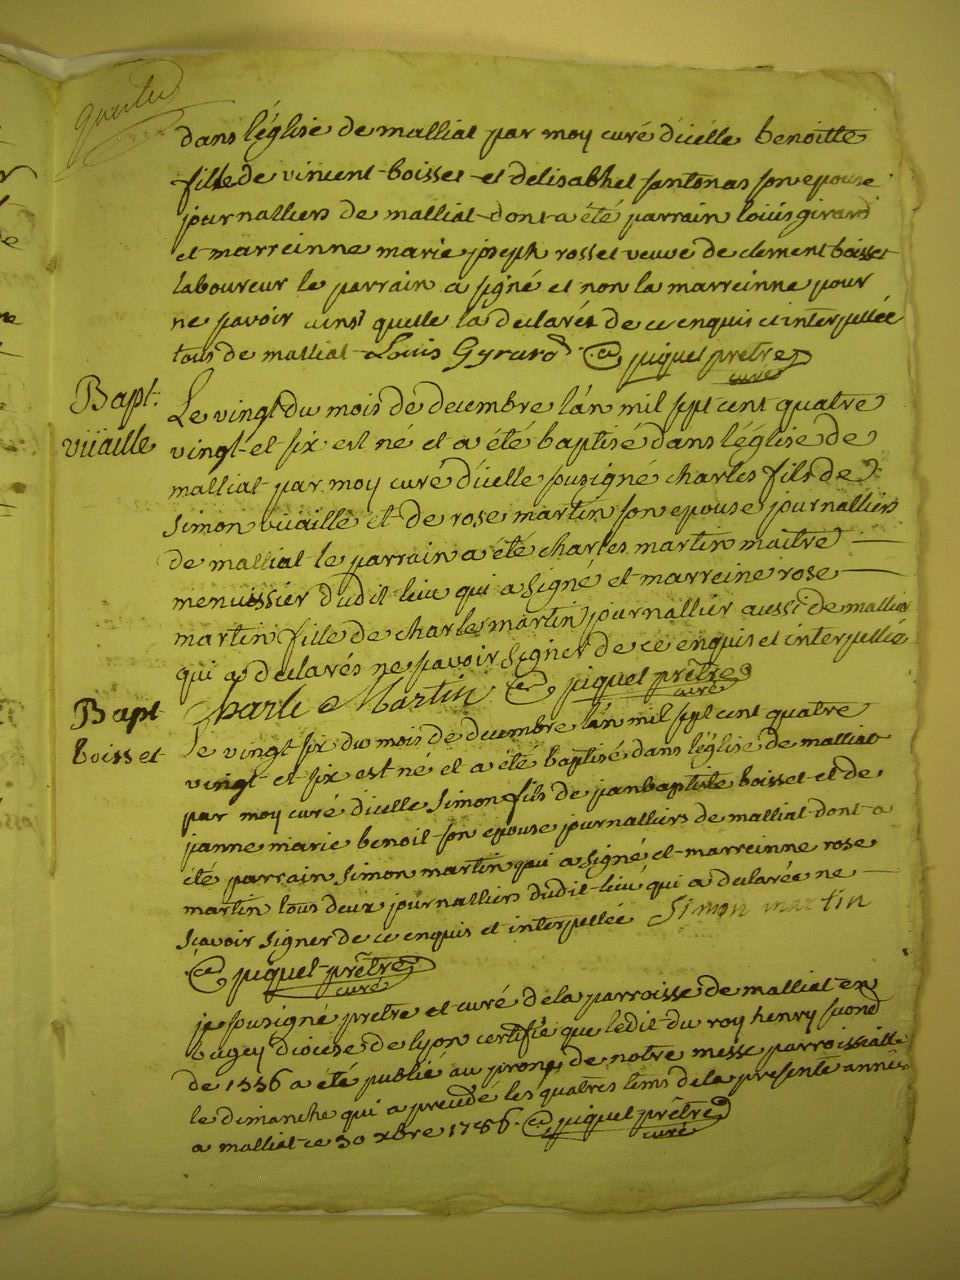 dans l'église de malliat par moy curé d'icelle benoitte
fille de vincent boisset et d'elisabhet santonas son epouse
journalliers de malliat dont a été parrain louis girard
et marreinne marie joseph rosset veuve de clement boisset
laboureur le parrain a signé et non la marreinne pour
ne savoir ainsi quelle la declarés de ce enquis et interpellée
tous de malliat Louis Gyrard piquet prêtre
curé
Bapt.
vuaille
Le vingt du mois de decembre l'an mil sept cent quatre
vingt et six est né et a été baptisé dans l'église de
malliat par moy curé d'icelle susigné charles fils de
simon vuaille et de rose martin son epouse journalliers
de malliat le parrain a été charles martin maitre
menuissier dudit lieu qui a signé et marreine rose
martin fille de charles martin journallier aussi de malliat
qui a declarés ne savoir signer de ce enquis et interpellée
Charle Martin piquet prêtre
curé
Bapt
boisset
Le vingt six du mois de decembre l'an mil sept cent quatre
vingt et six est né et a été baptisé dans l'église de malliat
par moy curé d'icelle simon fils de janbaptiste boisset et de
janne marie benoit son epouse journalliers de malliat dont a
été parrain simon martin qui a signé et marreinne rose
martin tous deux journalliers dudit lieu qui a declarée ne
scavoir signer de ce enquis et interpellée Simon martin
piquet prêtre
curé
je susigné prêtre et curé de la parroisse de malliat en
bugey diocese de lyon certifie que l'edit du roy henry second
de 1556 a été publié au prone de notre messe parroissialle
le dimanche qui a precedé les quatres tems de la presente année
a malliat ce 30 xbre 1786. piquet prêtre
curé